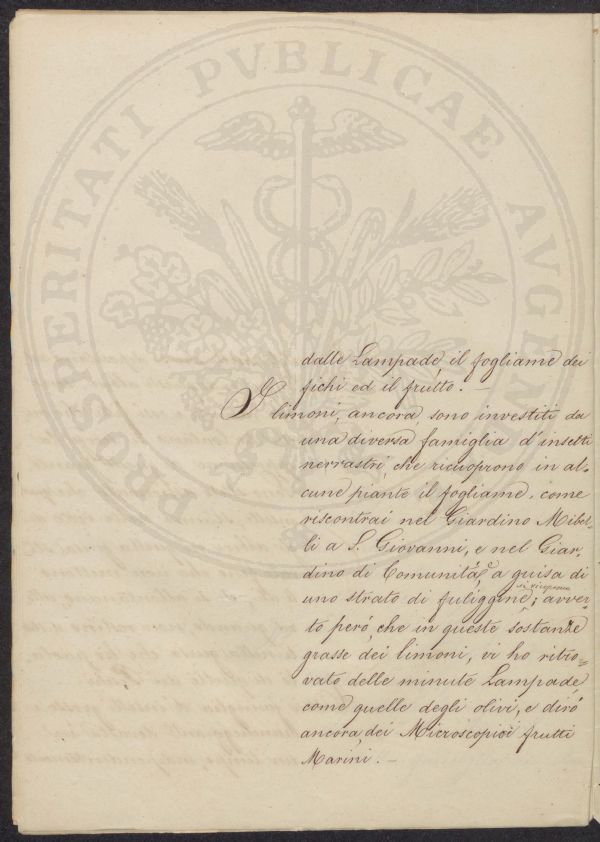 PROSPERITATI PVBLICAE AVGENDAE
dalle Lampade, il fogliame dei
fichi ed il frutto. —
I limoni, ancora, sono investiti da
una diversa famiglia d'insetti
nerrastri, che ricuoprono in al-
cune piante il fogliame, come
riscontrai nel Giardino Mibel-
li a S. Giovanni, e nel Giar-
dino di Comunità, e a guisa di
si ricuopre
uno strato di fuliggine; avver-
to però, che in queste sostanze
grasse dei limoni, vi ho ritro=
vato delle minute Lampade
come quelle degli olivi, e dirò
ancora, dei Microscopici frutti
Marini. —